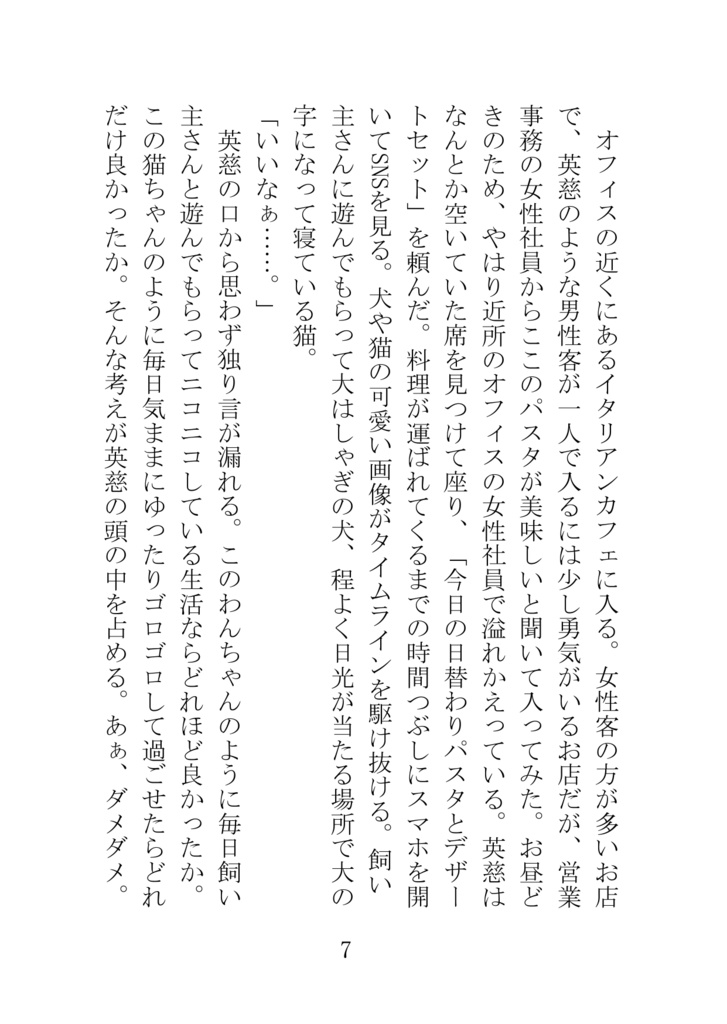 オフィスの近くにあるイタリアンカフェに入る。女性客の方が多いお店
で、英慈のような男性客が一人で入るには少し勇気がいるお店だが、営業
事務の女性社員からここのパスタが美味しいと聞いて入ってみた。お昼ど
きのため、やはり近所のオフィスの女性社員で溢れかえっている。英慈は
なんとか空いていた席を見つけて座り、「今日の日替わりパスタとデザー
トセット」を頼んだ。料理が運ばれてくるまでの時間つぶしにスマホを開
いてSNSを見る。犬や猫の可愛い画像がタイムラインを駆け抜ける。飼い
主さんに遊んでもらって大はしゃぎの犬、程よく日光が当たる場所で大の
字になって寝ている猫。
「いいなぁ……。」
　英慈の口から思わず独り言が漏れる。このわんちゃんのように毎日飼い
主さんと遊んでもらってニコニコしている生活ならどれほど良かったか。
この猫ちゃんのように毎日気ままにゆったりゴロゴロして過ごせたらどれ
だけ良かったか。そんな考えが英慈の頭の中を占める。あぁ、ダメダメ。
7